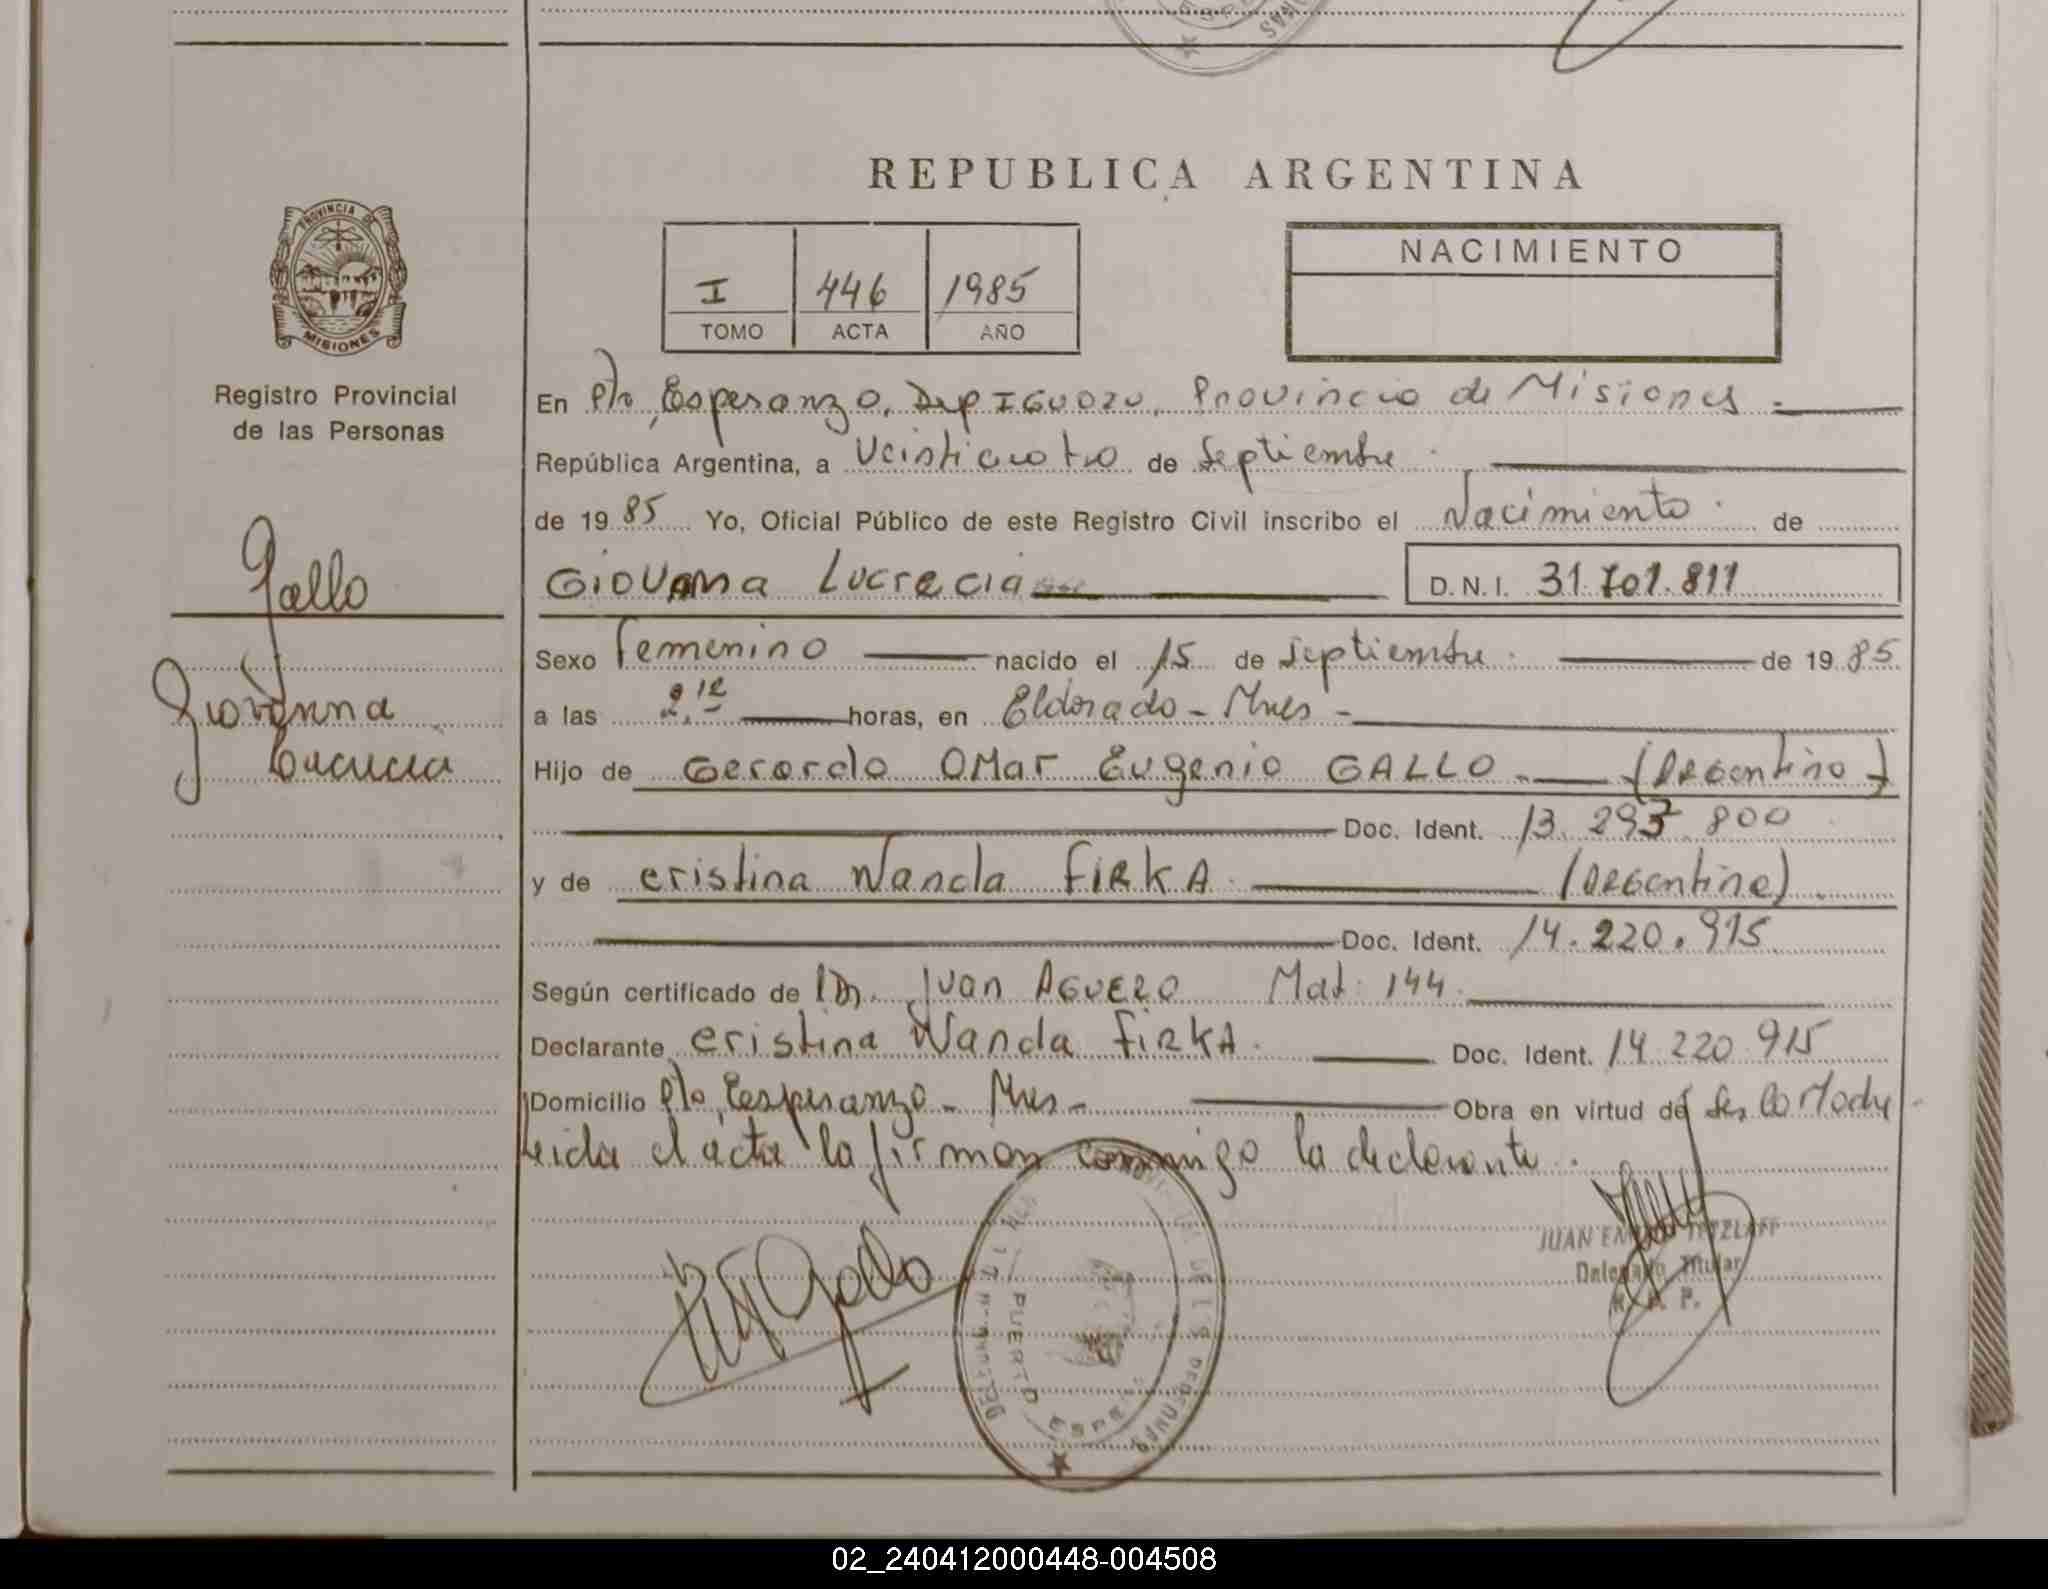 REPUBLICA ARGENTINA
PROVINCIA DE
MISIONES
Registro Provincial
de las Personas
I 446 1985
TOMO ACTA AÑO
NACIMIENTO
Gallo
Giovanna
Lucrecia
En Pto, Esperanza, Dep IGUAZU, Provincia de Misiones
República Argentina, a Veinticuatro de Septiembre
de 1985 Yo, Oficial Público de este Registro Civil inscribo el Nacimiento de
Giovanna Lucrecia D.N.I. 31.701.811
Sexo Femenino nacido el 15 de Septiembre de 1985
a las 2,12 horas, en Eldorado - Mnes -
Hijo de Gerardo OMar Eugenio GALLO (Argentino)
Doc. Ident. 13.293.800
y de Cristina Wanda FIRKA (Argentina)
Doc. Ident. 14.220.915
Según certificado de Dr. Juan AGUERO Mat: 144
Declarante Cristina Wanda FIRKA Doc. Ident. 14 220 915
Domicilio Pto, Esperanza - Mnes - Obra en virtud de
Leida el acta la firman conmigo la declarante.
Gallo
PUERTO ESPE
JUAN TETZLAFF
Delegado Titular
R. P.
02_240412000448-004508